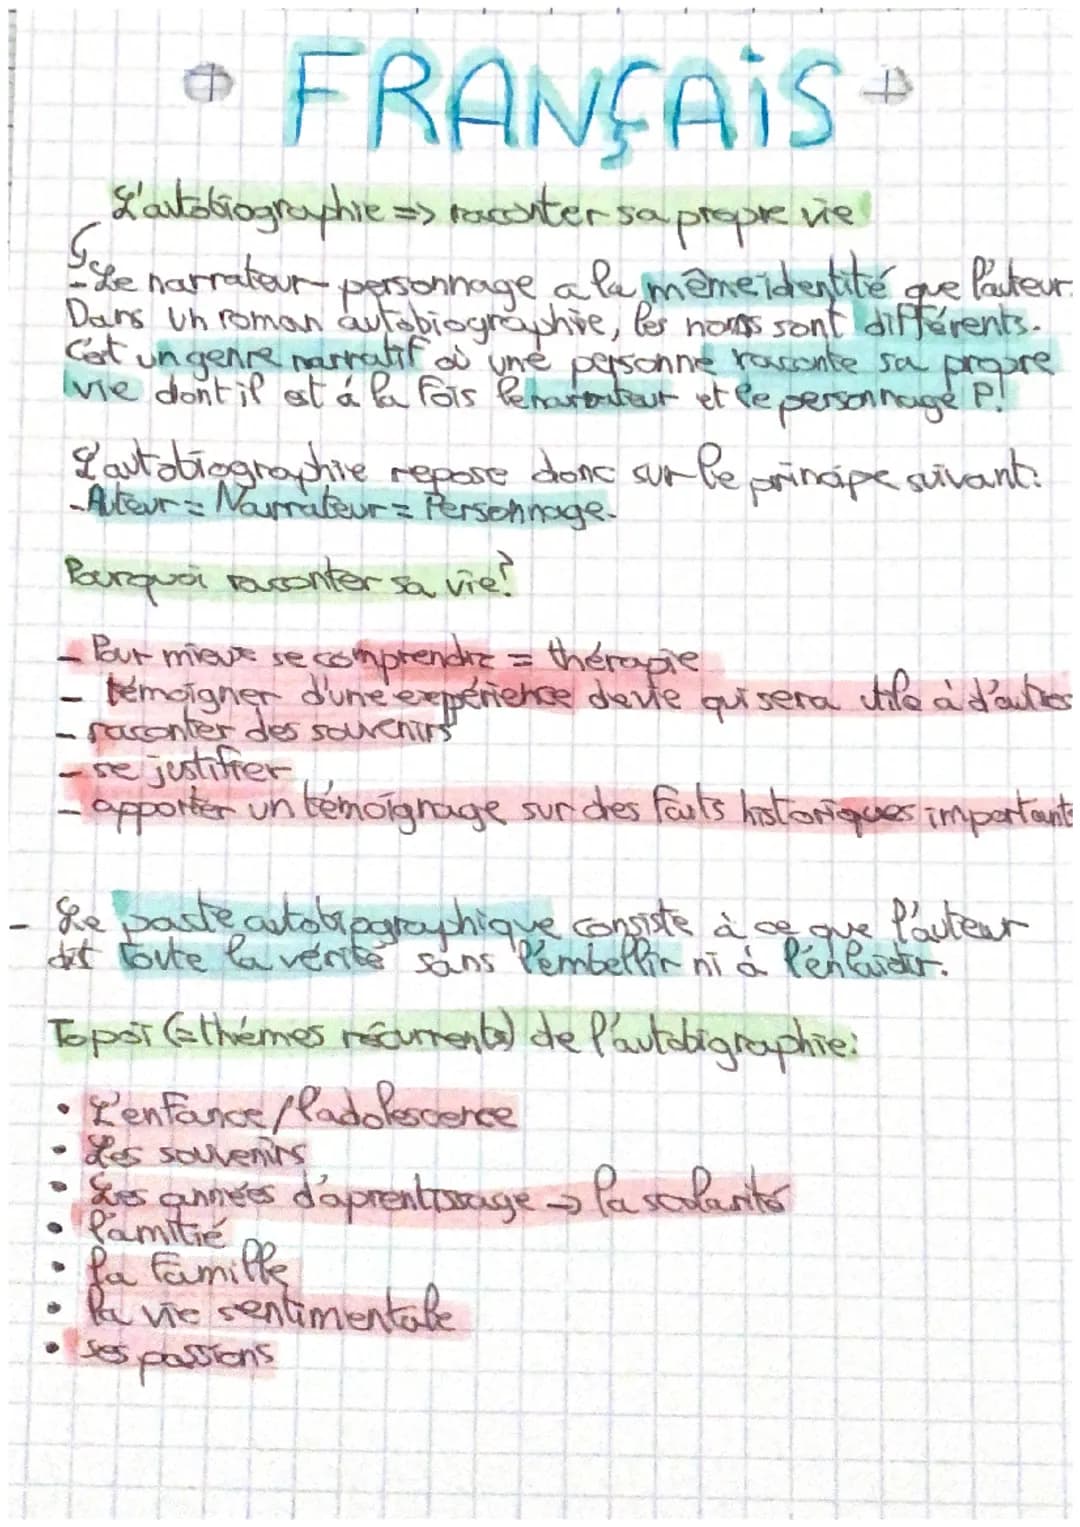 FRANÇAIS
L'autobiographie => raconter sa propre vie
- Le narrateur-personnage a la même identité que l'auteur.
Dans un roman autobiographie, les noms sont différents.
C'est un genre narratif où une personne raconte sa propre
vie dont il est à la fois le narrateur et le personnage P.!
L'autobiographie repose donc sur le principe suivant:
- Auteur = Narrateur = Personnage.
Pourquoi raconter sa vie?
- Pour mieux se comprendre = thérapie
- témoigner d'une expérience de vie qui sera utile à d'autres
- raconter des souvenirs
- se justifier
- apporter un témoignage sur des faits historiques importants
- Le paste autobiographique consiste à ce que l'auteur
dit toute la vérité sans l'embellir ni à l'enlaidir.
Topoï (=thèmes récurrents) de l'autobigraphie:
• L'enfance/l'adolescence
• Les souvenirs
• Les années d'aprentissage → la scolarité
• l'amitié
• la famille
• la vie sentimentale
• ses passions